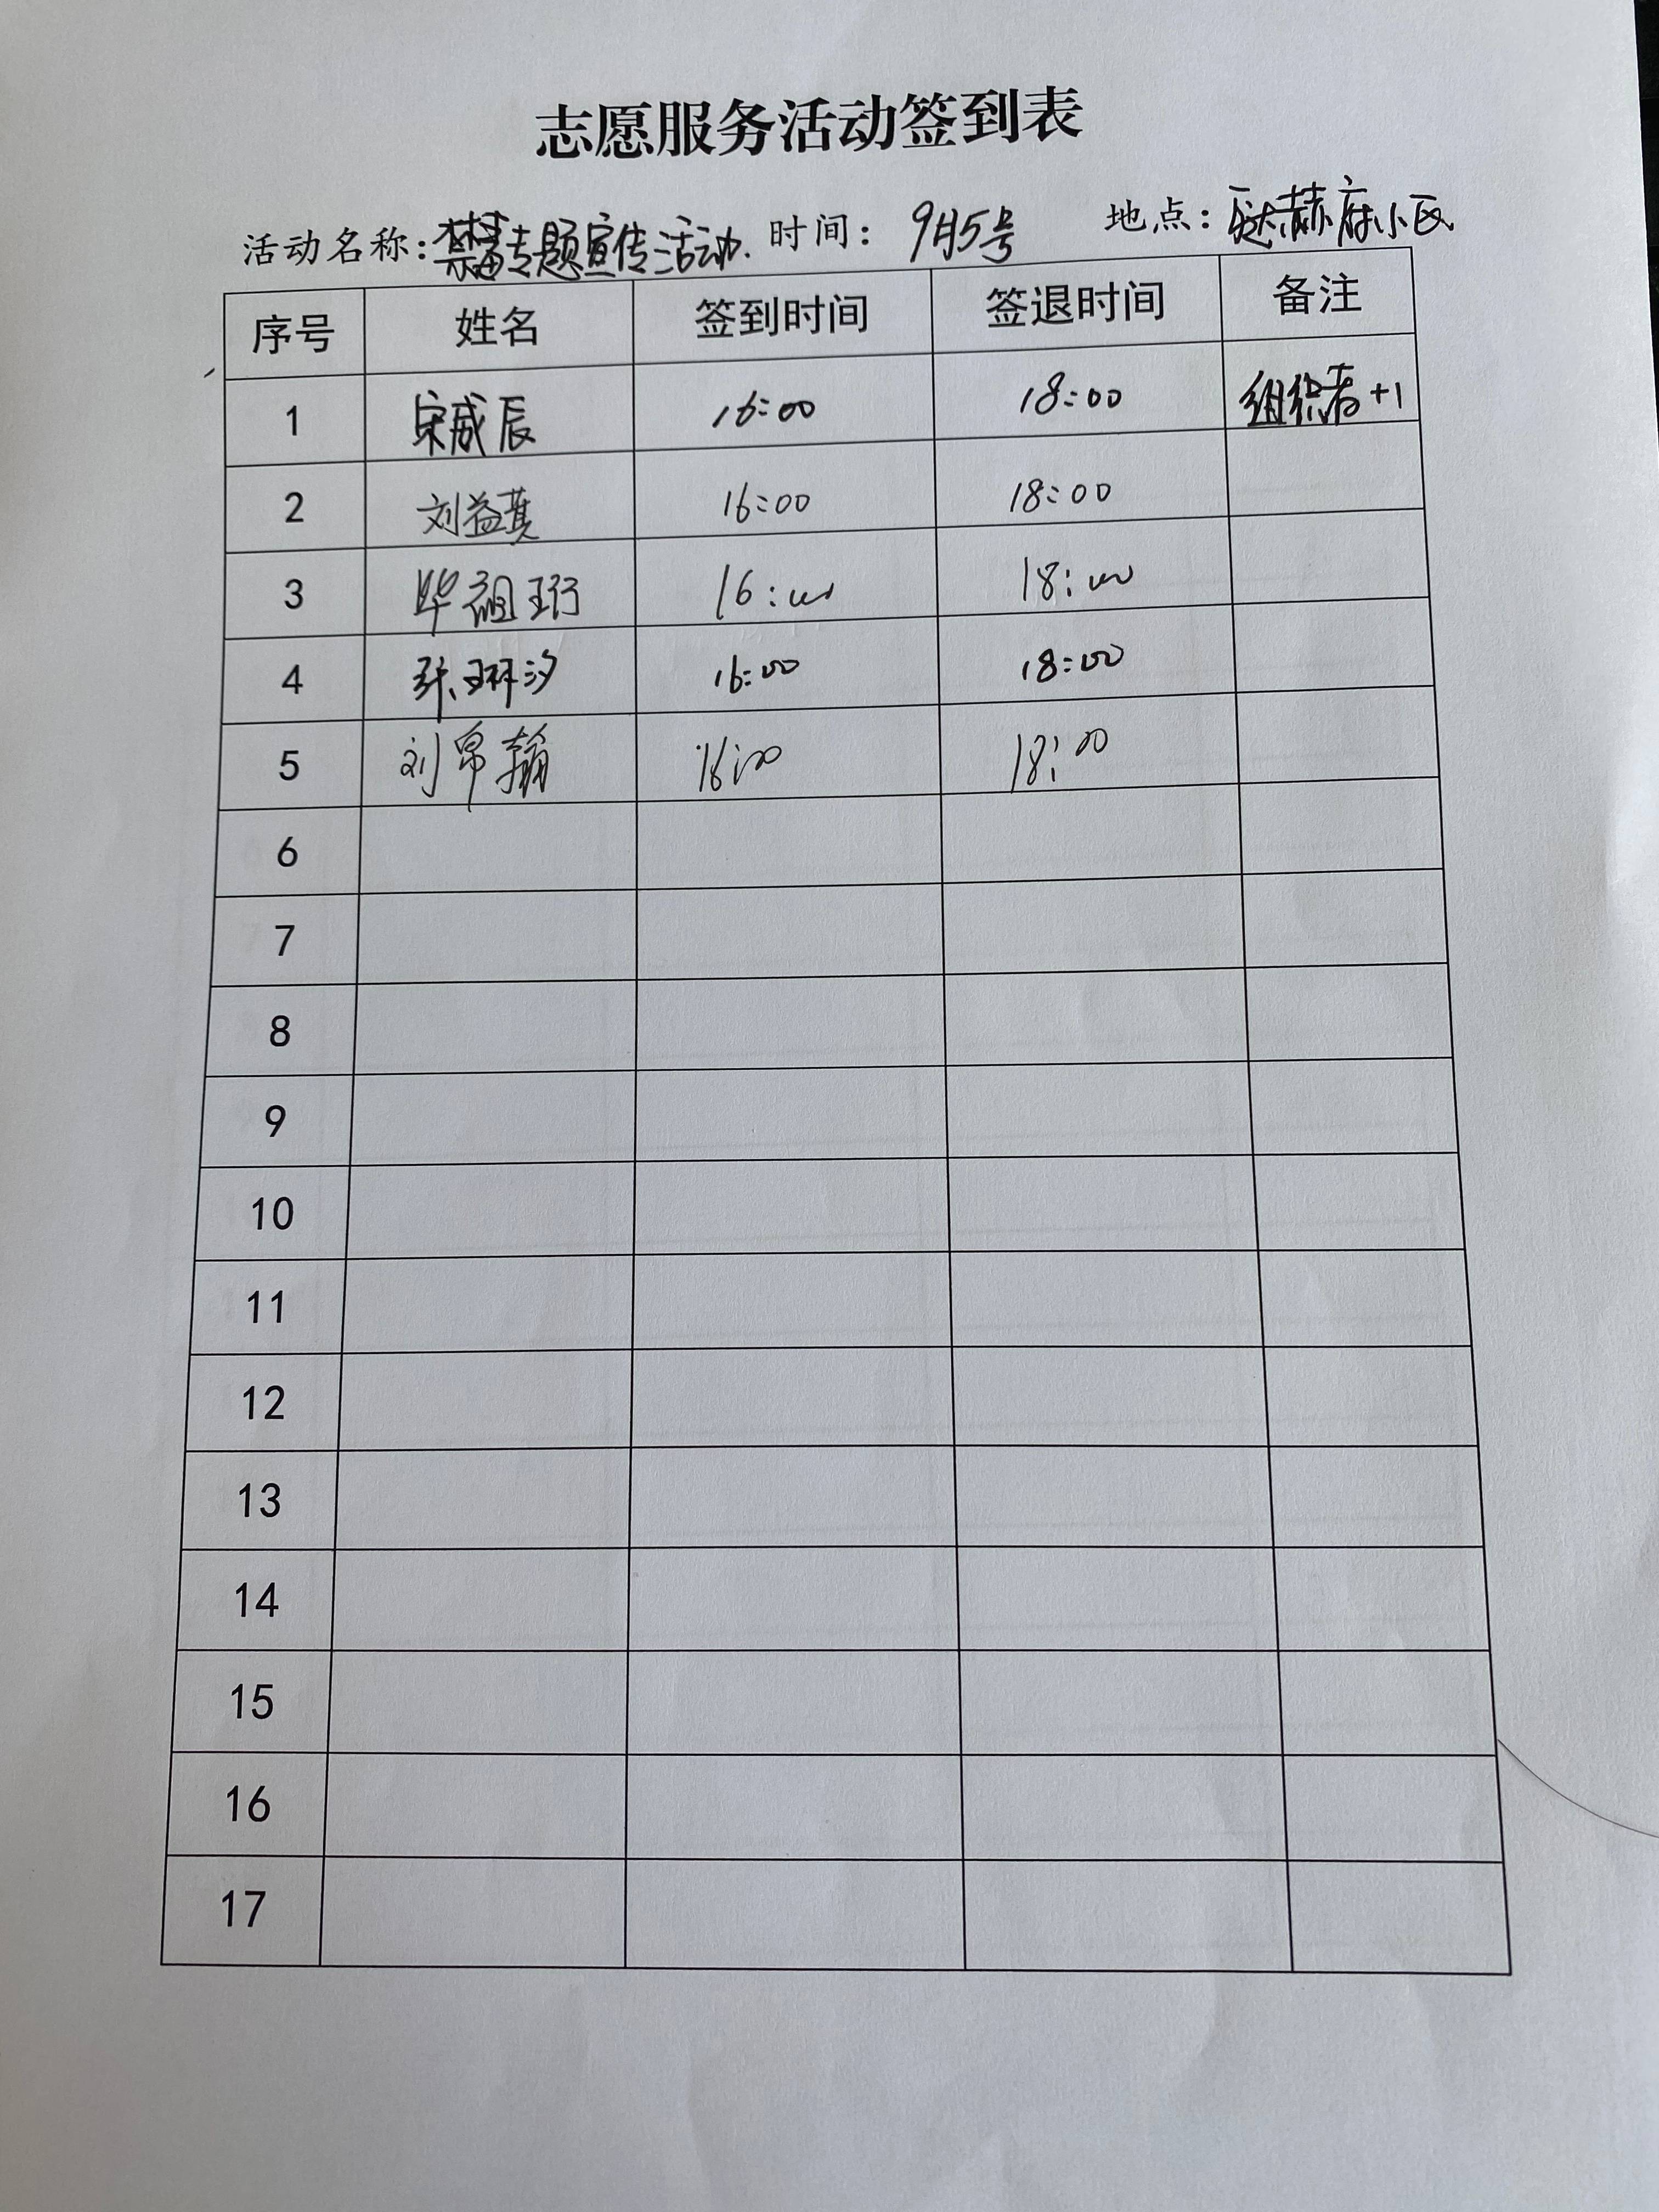 志愿服务活动签到表
活动名称:禁毒专题宣传活动. 时间: 9月5号 地点: 赫府小区
序号 姓名 签到时间 签退时间 备注
1 宋威辰 16:00 18:00 组织者+1
2 刘益 16:00 18:00
3 毕祖珩 16:00 18:00
4 张琳汐 16:00 18:00
5 刘帛翰 16:00 18:00
6
7
8
9
10
11
12
13
14
15
16
17